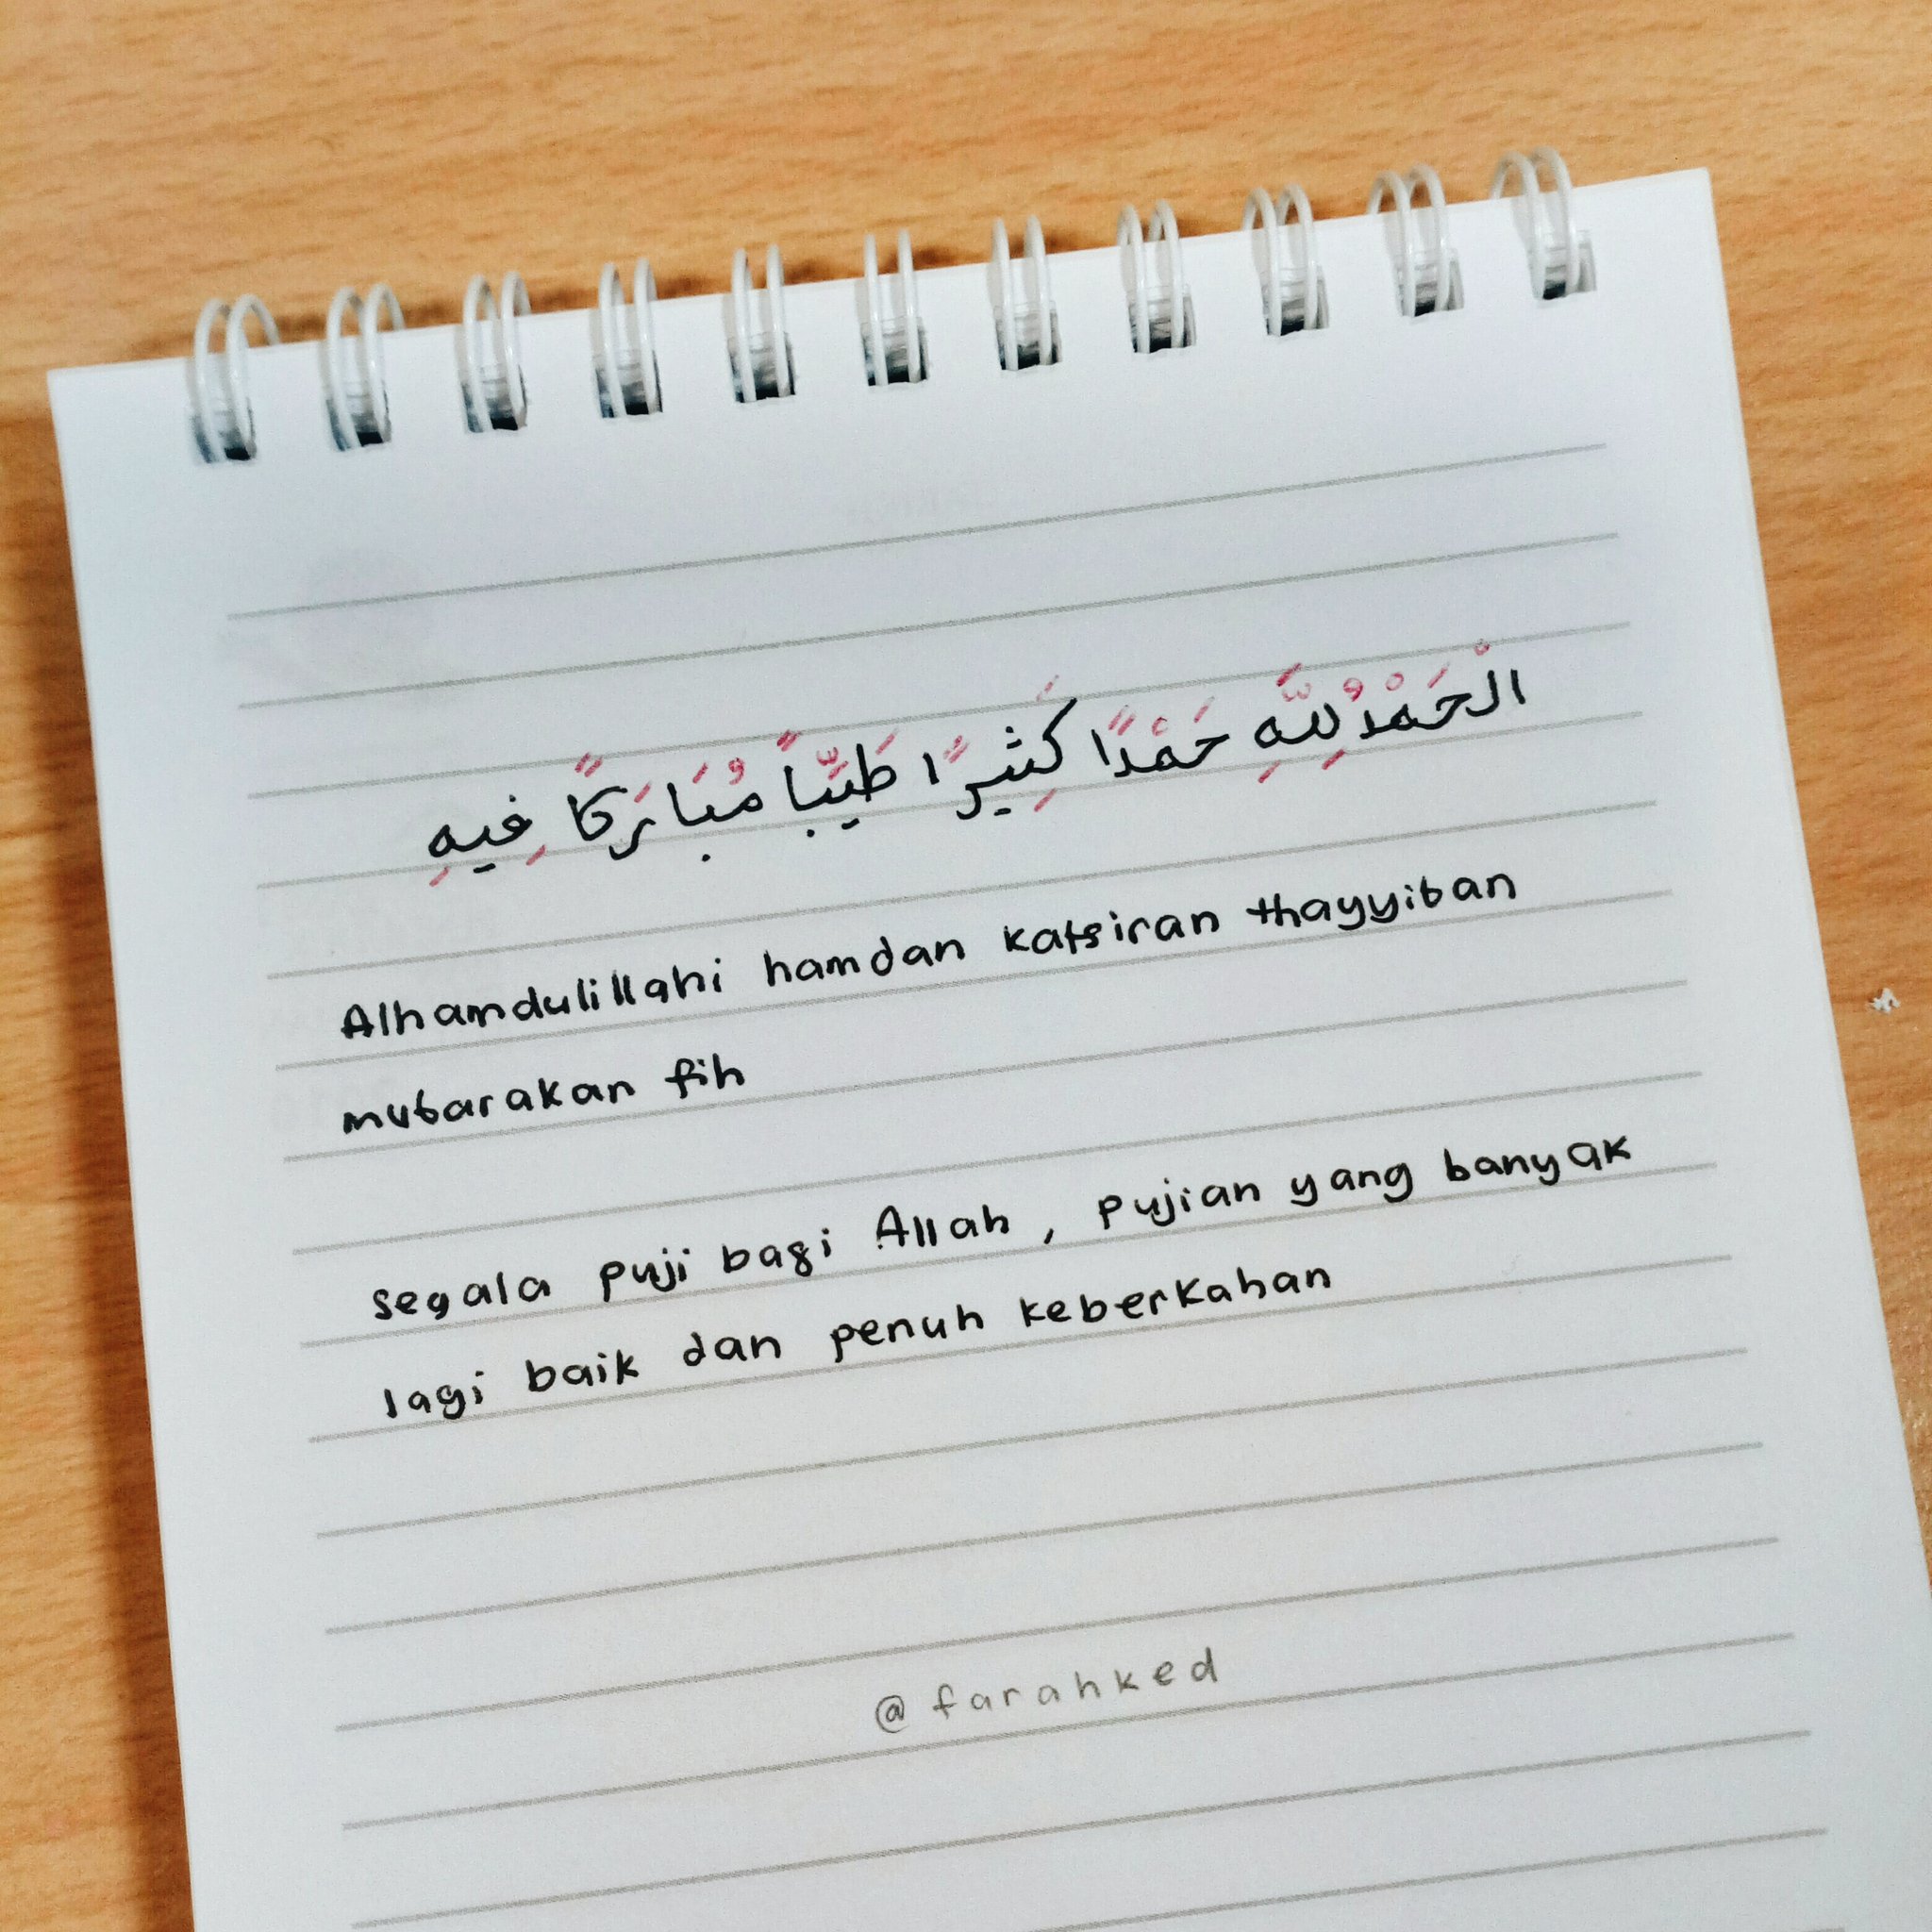 الْحَمْدُ لِلَّهِ حَمْدًا كَثِيرًا طَيِّبًا مُبَارَكًا فِيهِ
Alhamdulillahi hamdan katsiran thayyiban
mubarakan fih
segala puji bagi Allah, pujian yang banyak
lagi baik dan penuh keberkahan
@farahked